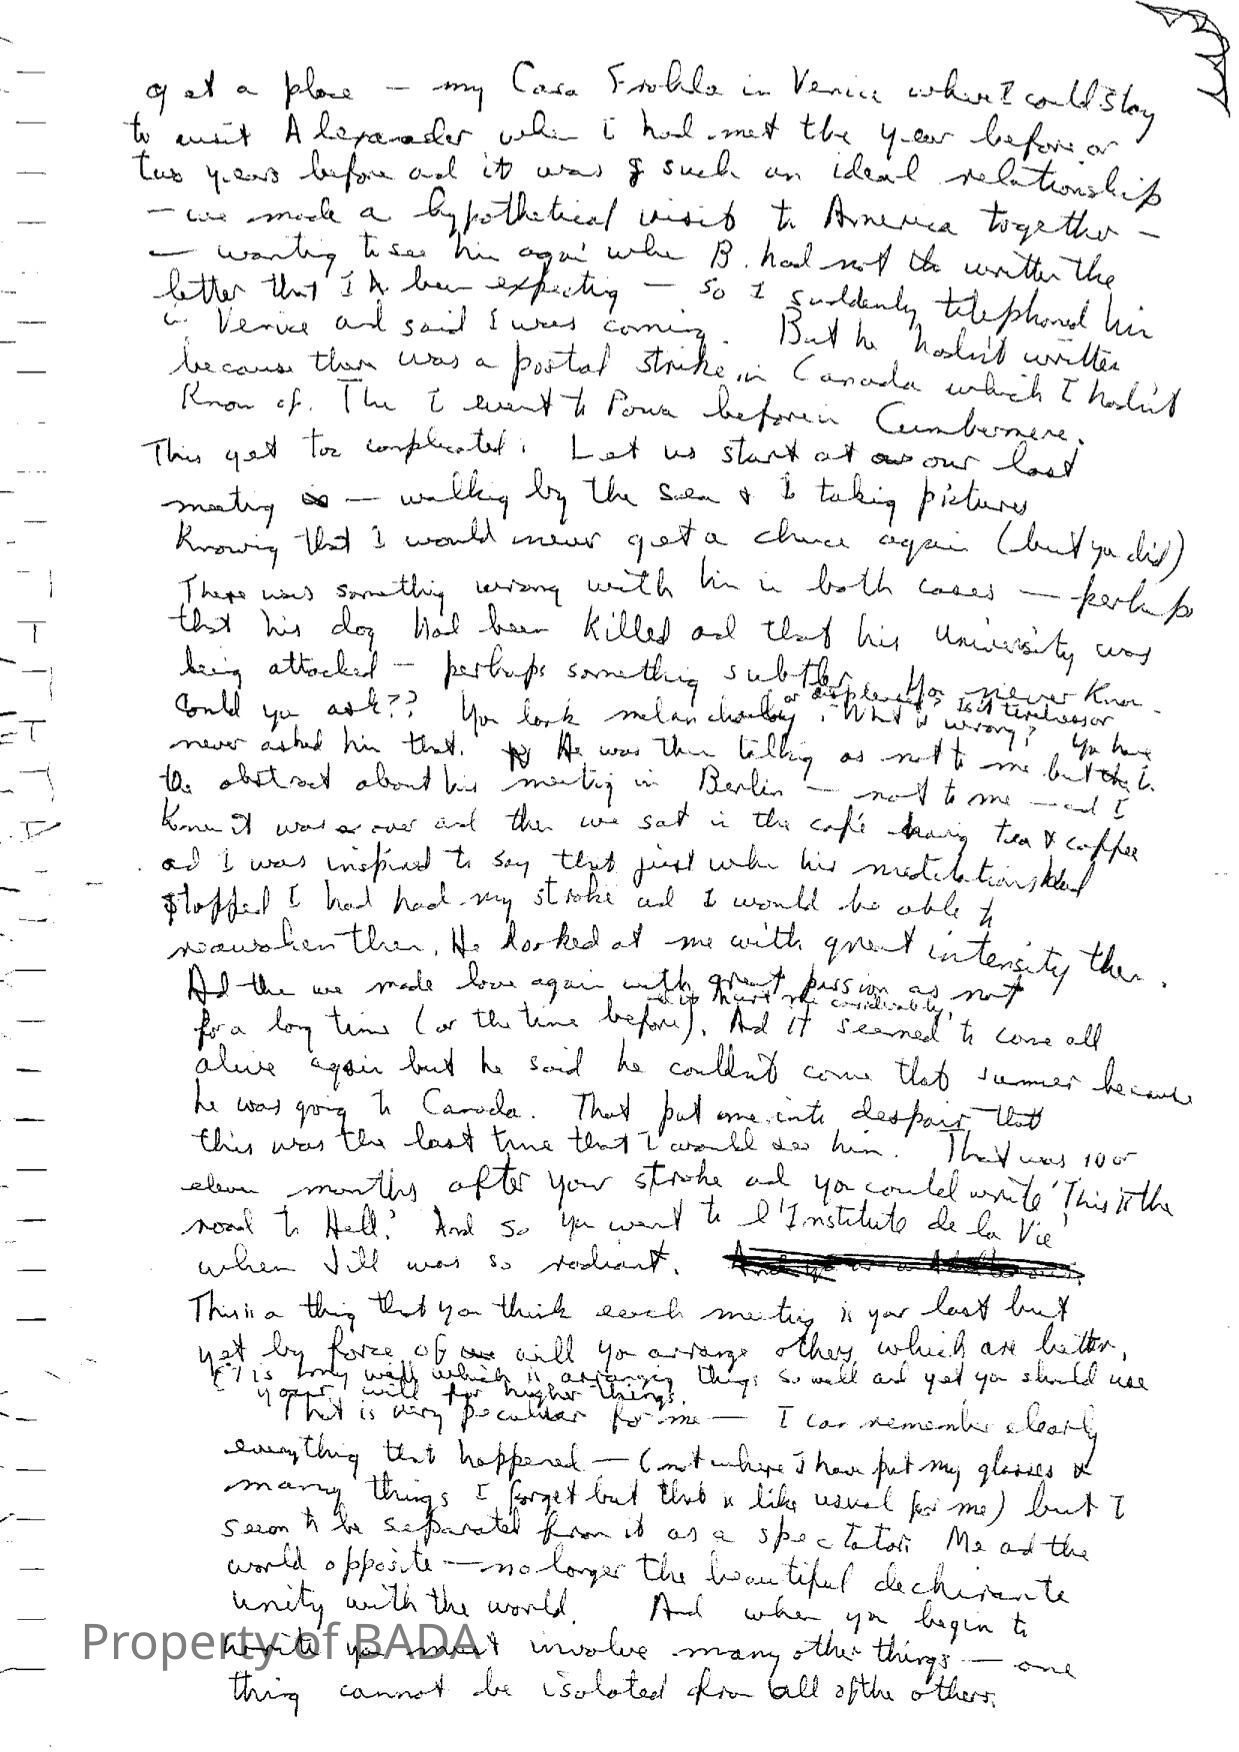 get a place – my Casa Frollo in Venice where I could stay
to visit Alexander when I had met the year before or
two years before and it was of such an ideal relationship
– we made a hypothetical visit to America together –
– wanting to see him again when B. had not the written the
letter that I h been expecting – so I suddenly telephoned him
in Venice and said I was coming. But he hadn't written
because there was a postal strike in Canada which I hadn't
Know of. The I went to before in Combermere.
This get too complicated. Let us start at our last
meeting – walking by the sea & I taking pictures
Knowing that I would never get a chance again (but you did)
There was something wrong with him in both cases – perhaps
that his dog had been killed and that his University was
being attacked – perhaps something subtler. You never know.
or displeased? Is it tendresse or
Could you ask?? You look melancholy. What is wrong? You have
never asked him that. He was then talking as not to me but to
the abstract about his meeting in Berlin – not to me – and I
Knew it was over and then we sat in the café having tea & coffee
and I was inspired to say that just when his meditations had
stopped I had had my stroke and I would be able to
reawaken them. He looked at me with great intensity then.
And the we made love again with great passion as not
it hurt me considerably,
for a long time (or the time before). And it seemed to come all
alive again but he said he couldn't come that summer because
he was going to Canada. That put me into despair that
this was the last time that I would see him. That was 10 or
eleven months after your stroke and you could write 'This is the
road to Hell.' And so you went to l'Institute de la Vie'
when Jill was so radiant.
This is a thing that you think each meeting is your last but
yet by force of will you arrange others which are better.
It is my will which is arranging things so well and yet you should use
your will for higher things.
That is very peculiar for me – I can remember clearly
everything that happened – (not where I have put my glasses &
many things I forget but that is like usual for me) but I
seem to be separated from it as a spectator. Me and the
world opposite – no longer the beautiful dechirante
unity with the world. And when you begin to
write you must involve many other things – one
thing cannot be isolated from all of the others.
Property of BADA